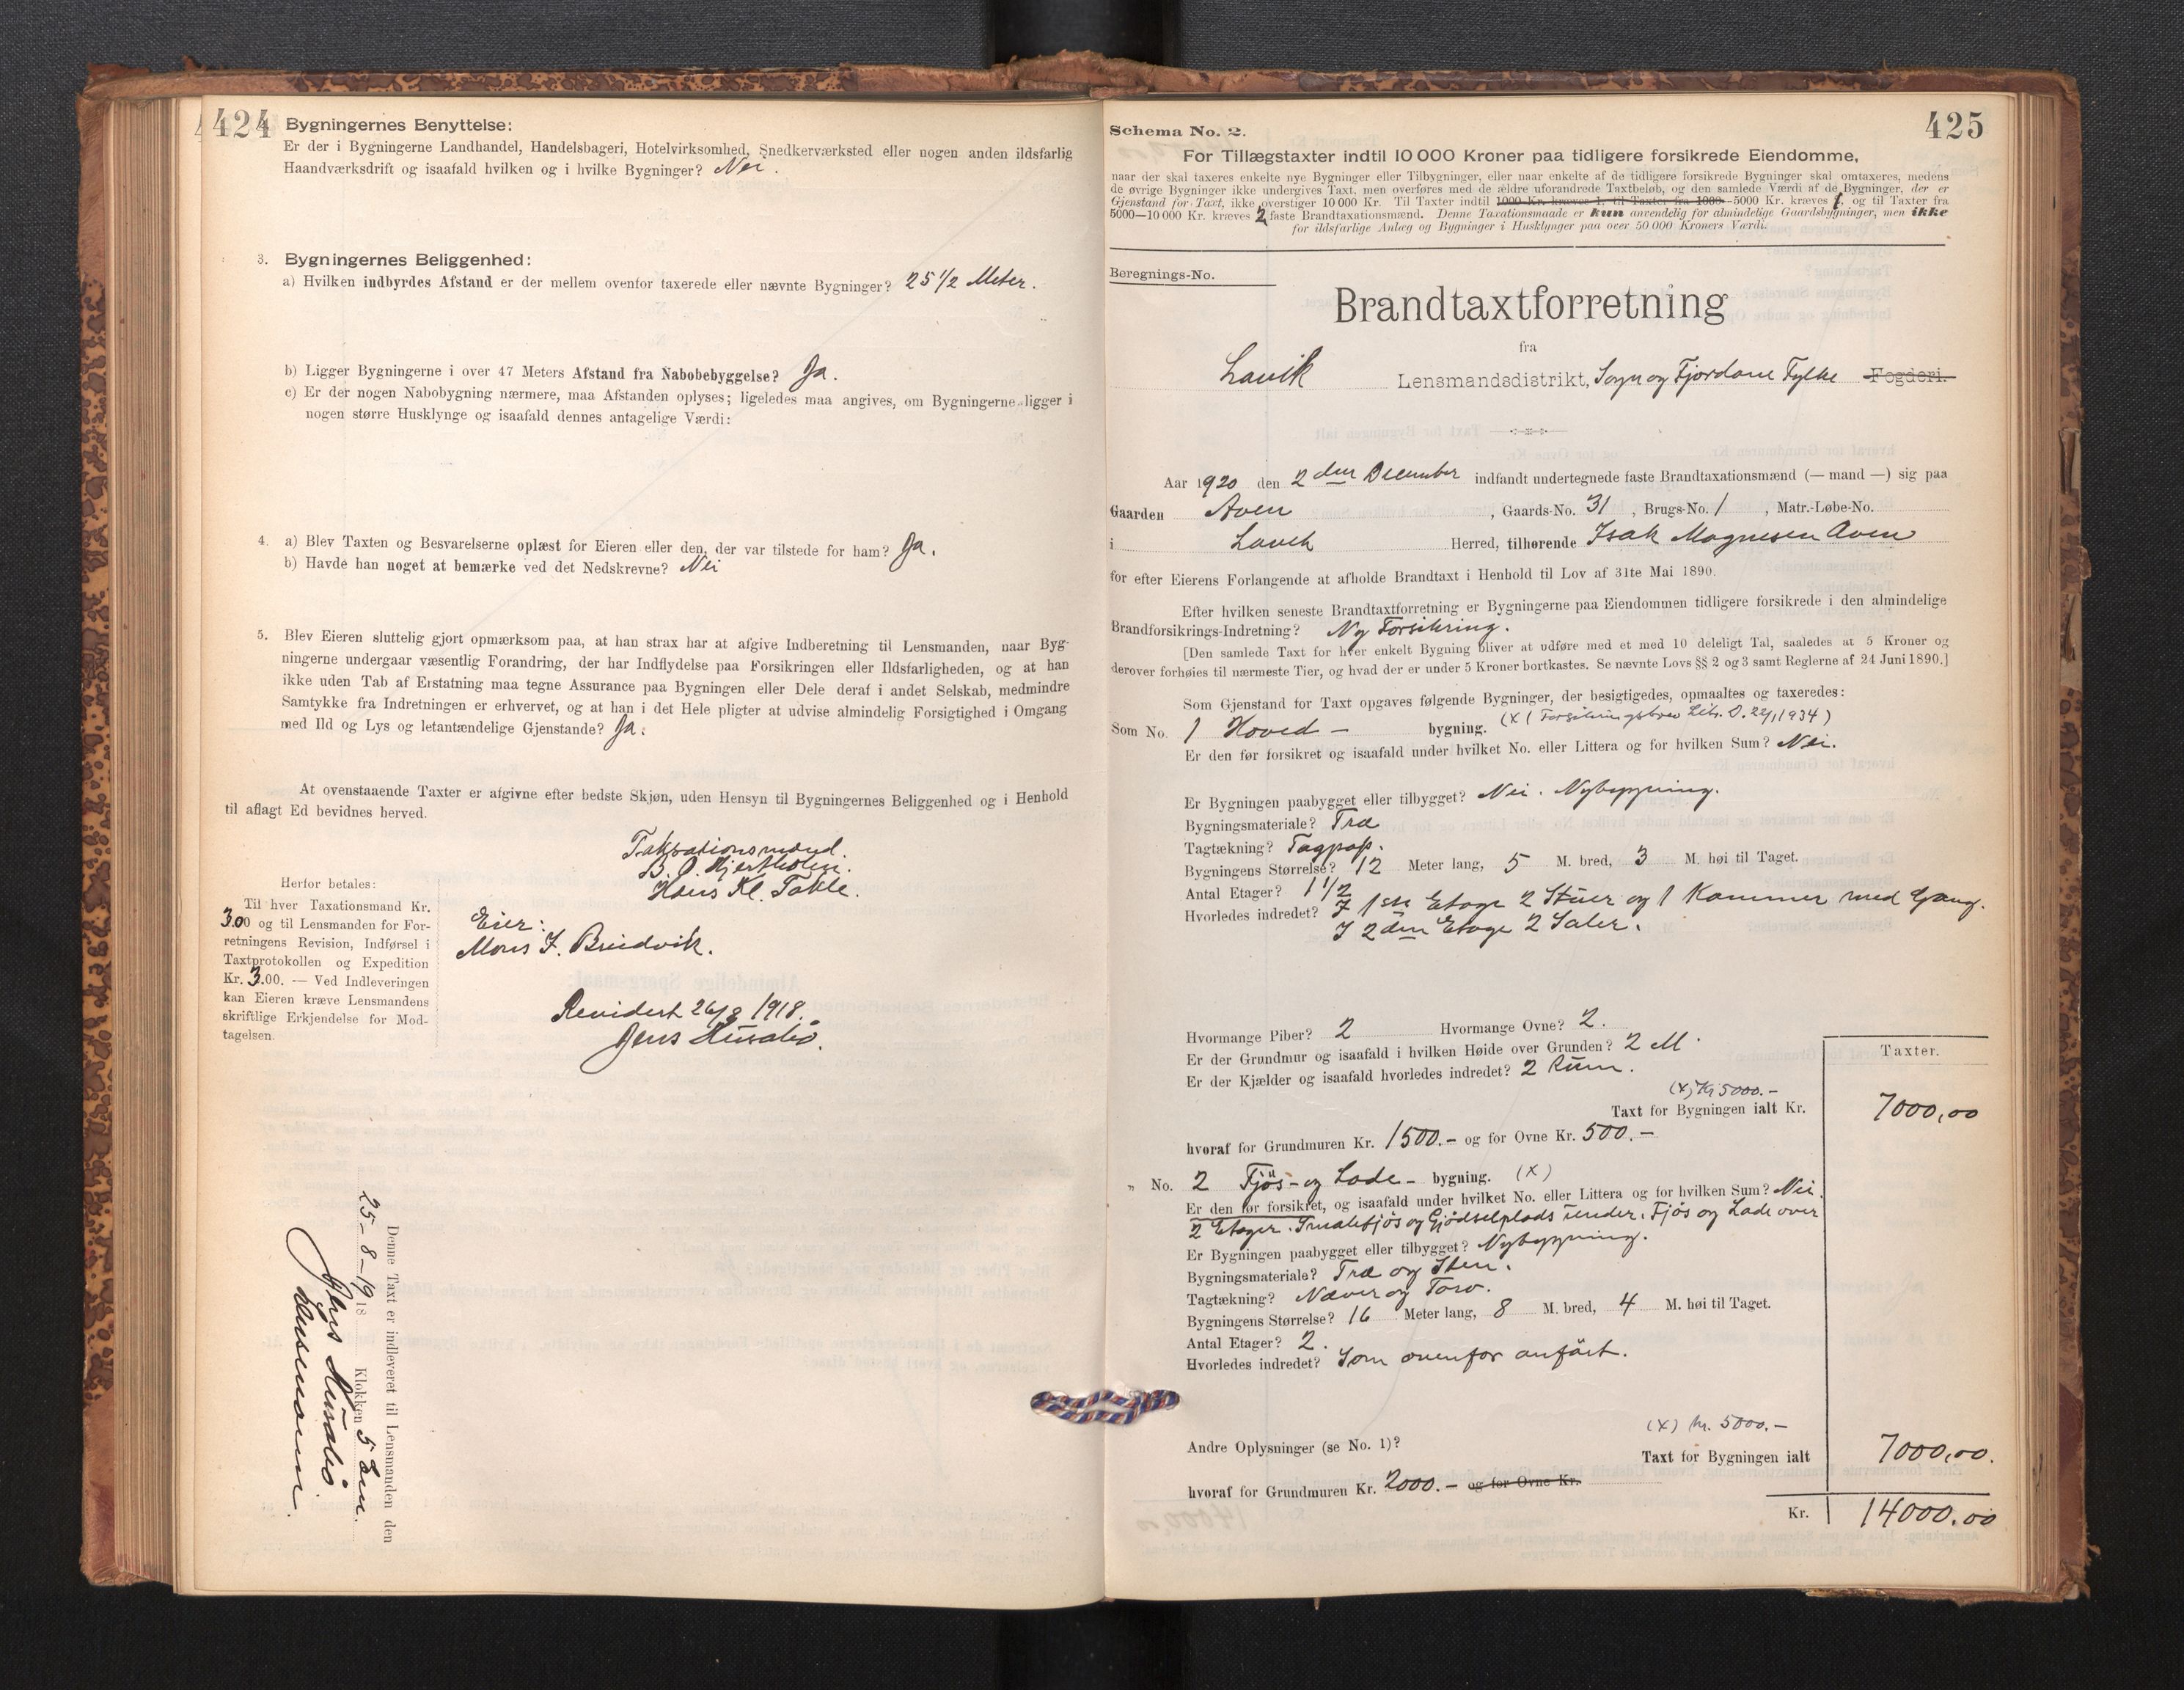 424
Bygningernes Benyttelse:
Er der i Bygningerne Landhandel, Handelsbageri, Hotelvirksomhed, Snedkerværksted eller nogen anden ildsfarlig
Haandværksdrift og isaafald hvilken og i hvilke Bygninger? Nei.
3. Bygningernes Beliggenhed:
a) Hvilken indbyrdes Afstand er der mellem ovenfor taxerede eller nævnte Bygninger? 25 1/2 Meter.
b) Ligger Bygningerne i over 47 Meters Afstand fra Nabobebyggelse? Ja.
c) Er der nogen Nabobygning nærmere, maa Afstanden oplyses; ligeledes maa angives, om Bygningerne ligger i
nogen større Husklynge og isaafald dennes antagelige Værdi:
4. a) Blev Taxten og Besvarelserne oplæst for Eieren eller den, der var tilstede for ham? Ja.
b) Havde han noget at bemærke ved det Nedskrevne? Nei
5. Blev Eieren sluttelig gjort opmærksom paa, at han strax har at afgive Indberetning til Lensmanden, naar Byg-
ningerne undergaar væsentlig Forandring, der har Indflydelse paa Forsikringen eller Ildsfarligheden, og at han
ikke uden Tab af Erstatning maa tegne Assurance paa Bygningen eller Dele deraf i andet Selskab, medmindre
Samtykke fra Indretningen er erhvervet, og at han i det Hele pligter at udvise almindelig Forsigtighed i Omgang
med Ild og Lys og letantændelige Gjenstande? Ja.
At ovenstaaende Taxter er afgivne efter bedste Skjøn, uden Hensyn til Bygningernes Beliggenhed og i Henhold
til aflagt Ed bevidnes herved.
Taksationsmænd.
B. O. Hjertholm.
Hans Kl. Takle.
Eier:
Mons J. Breidvik.
Revidert 26/8 1918.
Jens Husabø.
Herfor betales:
Til hver Taxationsmand Kr.
3.00 og til Lensmanden for For-
retningens Revision, Indførsel i
Taxtprotokollen og Expedition
Kr. 3.00. — Ved Indleveringen
kan Eieren kræve Lensmandens
skriftlige Erkjendelse for Mod-
tagelsen.
Denne Taxt er indleveret til Lensmanden den
25-8-1918 Klokken 5 Em.
Jens Husabø
Lensmann.
425
Schema No. 2.
For Tillægstaxter indtil 10 000 Kroner paa tidligere forsikrede Eiendomme,
naar der skal taxeres enkelte nye Bygninger eller Tilbygninger, eller naar enkelte af de tidligere forsikrede Bygninger skal omtaxeres, medens
de øvrige Bygninger ikke undergives Taxt, men overføres med de ældre uforandrede Taxtbeløb, og den samlede Værdi af de Bygninger, der er
Gjenstand for Taxt, ikke overstiger 10 000 Kr. Til Taxter indtil 1000 Kr. kræves 1, til Taxter fra 1000-5000 Kr. kræves 1, og til Taxter fra
5000—10 000 Kr. kræves 2 faste Brandtaxationsmænd. Denne Taxationsmaade er kun anvendelig for almindelige Gaardsbygninger, men ikke
for ildsfarlige Anlæg og Bygninger i Husklynger paa over 50 000 Kroners Værdi.
Beregnings-No.
Brandtaxtforretning
fra
Lavik Lensmandsdistrikt, Sogn og Fjordane Fylke Fogderi.
Aar 1920 den 2den December indfandt undertegnede faste Brandtaxationsmænd (— mand —) sig paa
Gaarden Aven, Gaards-No. 31, Brugs-No. 1, Matr.-Løbe-No.
i Lavik Herred, tilhørende Isak Magnesen Aven
for efter Eierens Forlangende at afholde Brandtaxt i Henhold til Lov af 31te Mai 1890.
Efter hvilken seneste Brandtaxtforretning er Bygningerne paa Eiendommen tidligere forsikrede i den almindelige
Brandforsikrings-Indretning? Ny Forsikring.
[Den samlede Taxt for hver enkelt Bygning bliver at udføre med et med 10 deleligt Tal, saaledes at 5 Kroner og
derover forhøies til nærmeste Tier, og hvad der er under 5 Kroner bortkastes. Se nævnte Lovs §§ 2 og 3 samt Reglerne af 24 Juni 1890.]
Som Gjenstand for Taxt opgaves følgende Bygninger, der besigtigedes, opmaaltes og taxeredes:
Som No. 1 Hoved - bygning. (x (Forsikringsbrev Litr. O. 22/1 1934)
Er den før forsikret og isaafald under hvilket No. eller Littera og for hvilken Sum? Nei.
Er Bygningen paabygget eller tilbygget? Nei. Nybygning.
Bygningsmateriale? Træ
Tagtækning? Tagpap.
Bygningens Størrelse? 12 Meter lang, 5 M. bred, 3 M. høi til Taget.
Antal Etager? 1 1/2
Hvorledes indredet? I 1ste Etage 2 Stuer og 1 Kammer med Gang.
I 2den Etage 2 Saler.
Hvormange Piber? 2 Hvormange Ovne? 2.
Er der Grundmur og isaafald i hvilken Høide over Grunden? 2 M.
Er der Kjælder og isaafald hvorledes indredet? 2 Rum.
Taxter.
(x) Kr 5000.-
Taxt for Bygningen ialt Kr. 7000,00
hvoraf for Grundmuren Kr. 1500.- og for Ovne Kr. 500.-
„ No. 2 Fjøs- og Lade- bygning. (x)
Er den før forsikret, og isaafald under hvilket No. eller Littera og for hvilken Sum? Nei.
2 Etager. Smalefjøs og Gjødselplads under. Fjøs og Lade over
Er Bygningen paabygget eller tilbygget? Nybygning.
Bygningsmateriale? Træ og Sten.
Tagtækning? Næver og Torv.
Bygningens Størrelse? 16 Meter lang, 8 M. bred, 4 M. høi til Taget.
Antal Etager? 2.
Hvorledes indredet? Som ovenfor anført.
(x) Kr. 5000.-
Andre Oplysninger (se No. 1)?
Taxt for Bygningen ialt 7000,00.
hvoraf for Grundmuren Kr. 2000.- og for Ovne Kr.
Kr. 14000.00